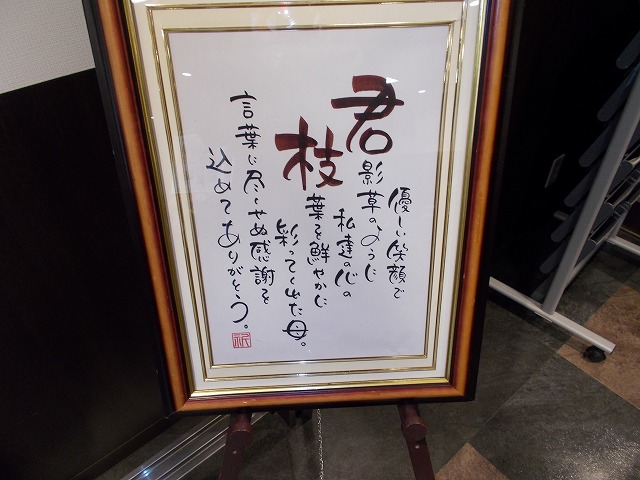 優しい笑顔で
君影草のように
私達の心の
枝葉を鮮やかに
彩ってくれた母。
言葉に尽くせぬ感謝を
込めてありがとう。